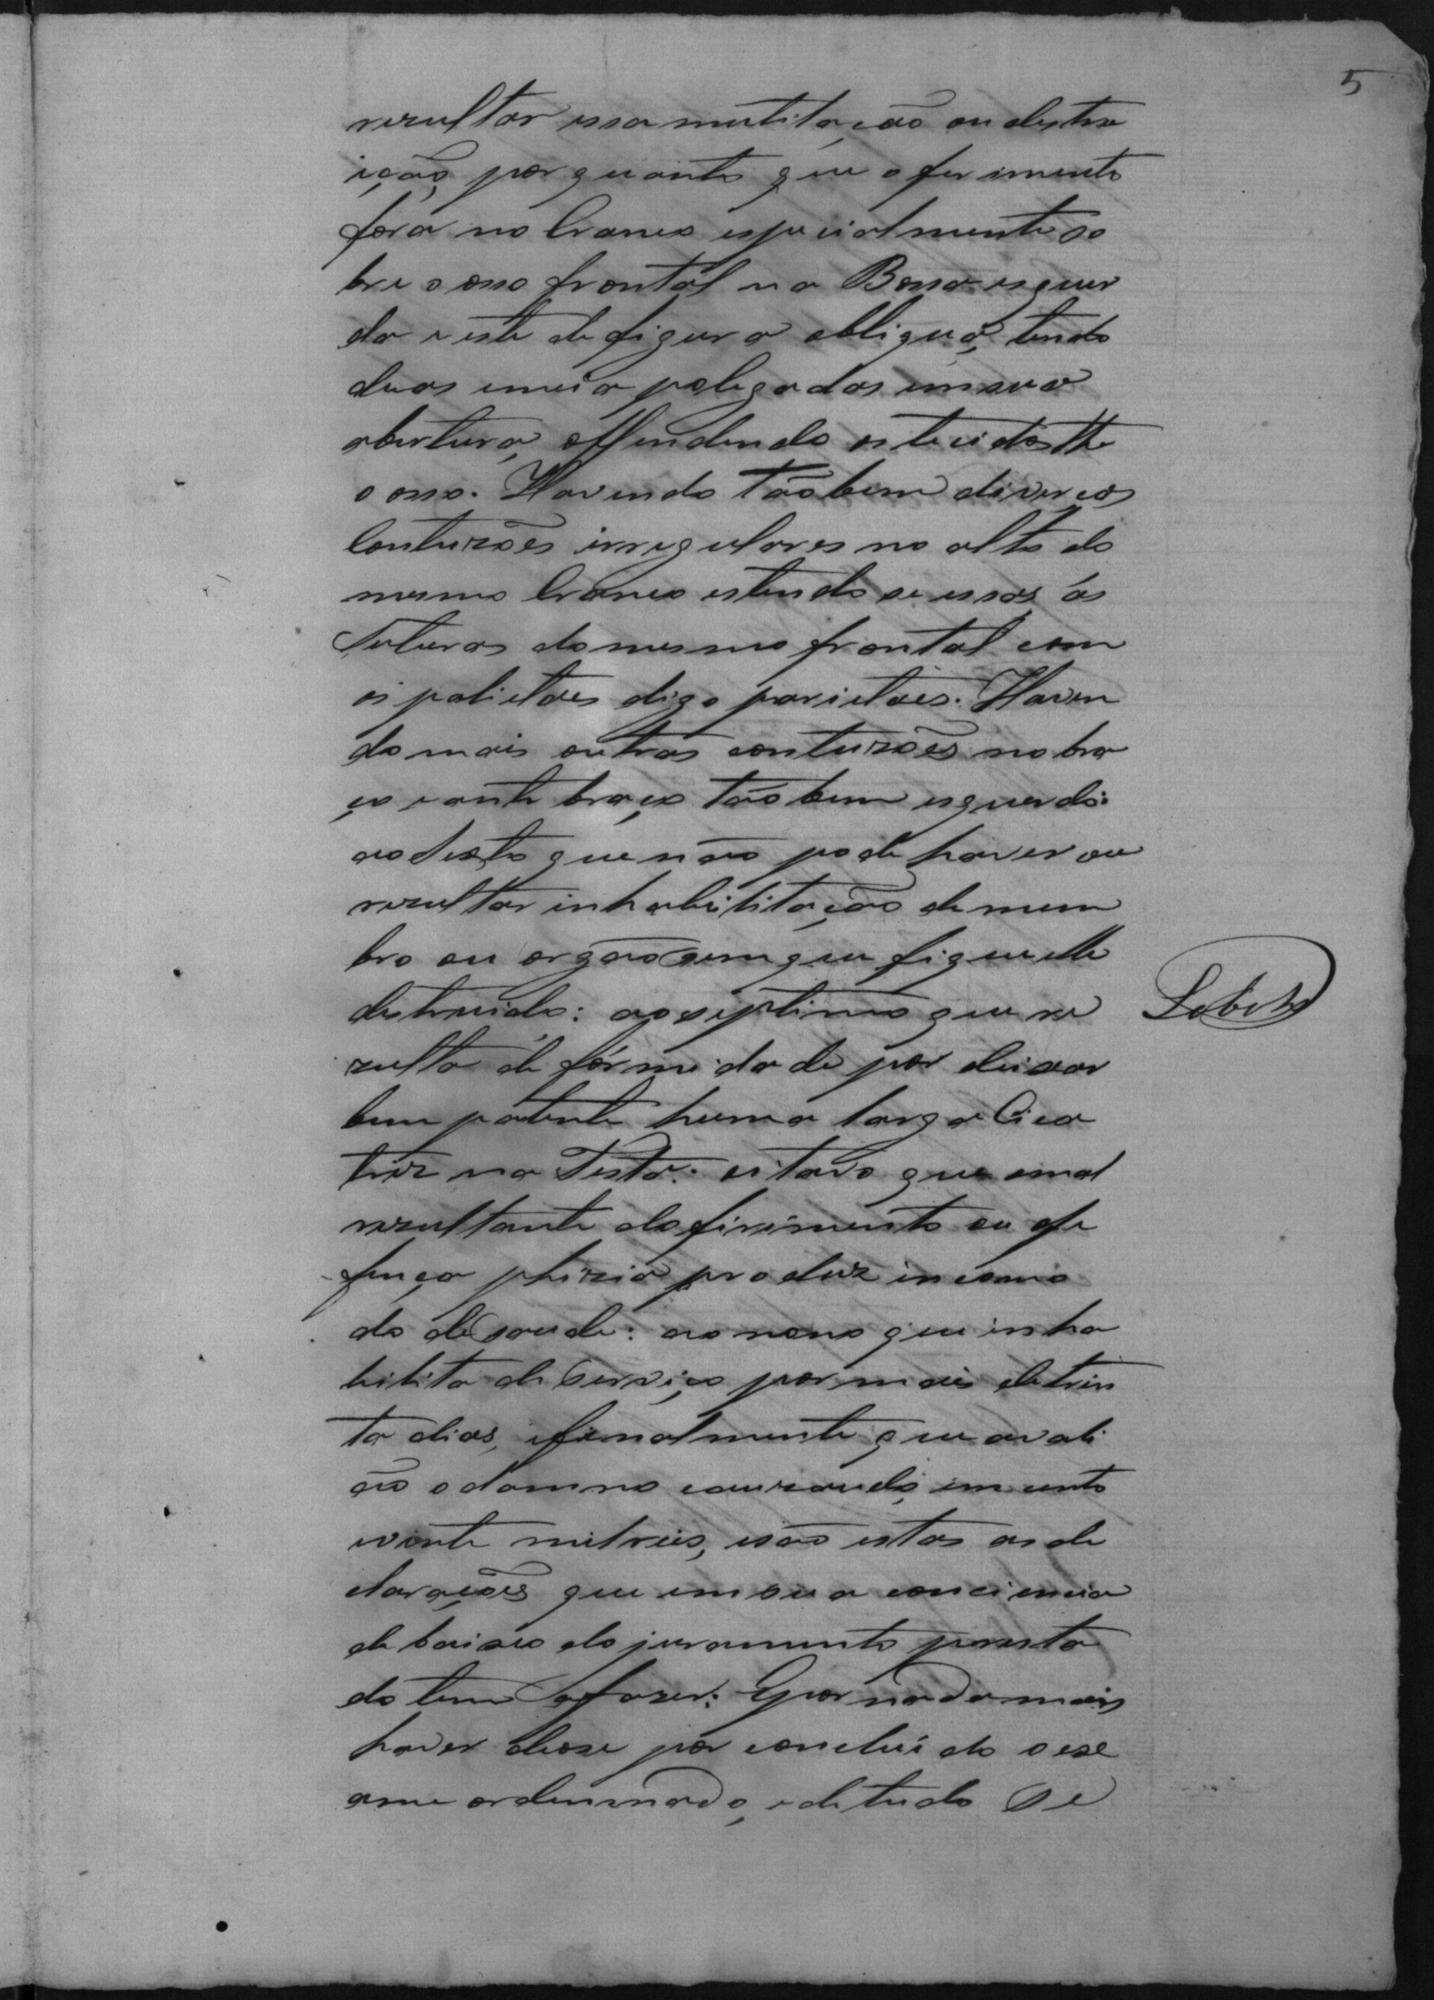 5
rezultar essa mutilação ou destru
ição, por quanto que o ferimento
fora no Craneo especialmente so
bre o osso frontal na Bossa esquer
da e este de figura obliqua, tendo
duas e meia polegadas em sua
abertura, offendendo os tecidos thé
o osso. Havendo tãobem diverças
Contuzões irregulares no alto do
mesmo Craneo estendo se essas ás
Suturas do mesmo frontal com
os palietaes digo parietaes. Haven
do mais outras contuzões no bra
ço e ante braço tãobem esquerdo:
ao sexto que não pode haver ou
rezultar inhabilitação de mem
bro ou orgão sem que fique elle
destruido: ao septimo que re
zulta deformidade por deixar
bem patente huma larga Cica
triz na Testa: oitavo que o mal
rezultante do firimento ou of
fença phizica produz incomo
do de saude: ao nono que inha
bilita de serviço por mais de trin
ta dias, e finalmente que avali
ão o damno cauzando, em cento
e vinte milreis, e são estas as de
clarações que em sua conciencia
de baixo do juramento presta
do tem a fazer: E por nada mais
haver deose por concluido o exa
ame ordennado, e de tudo se